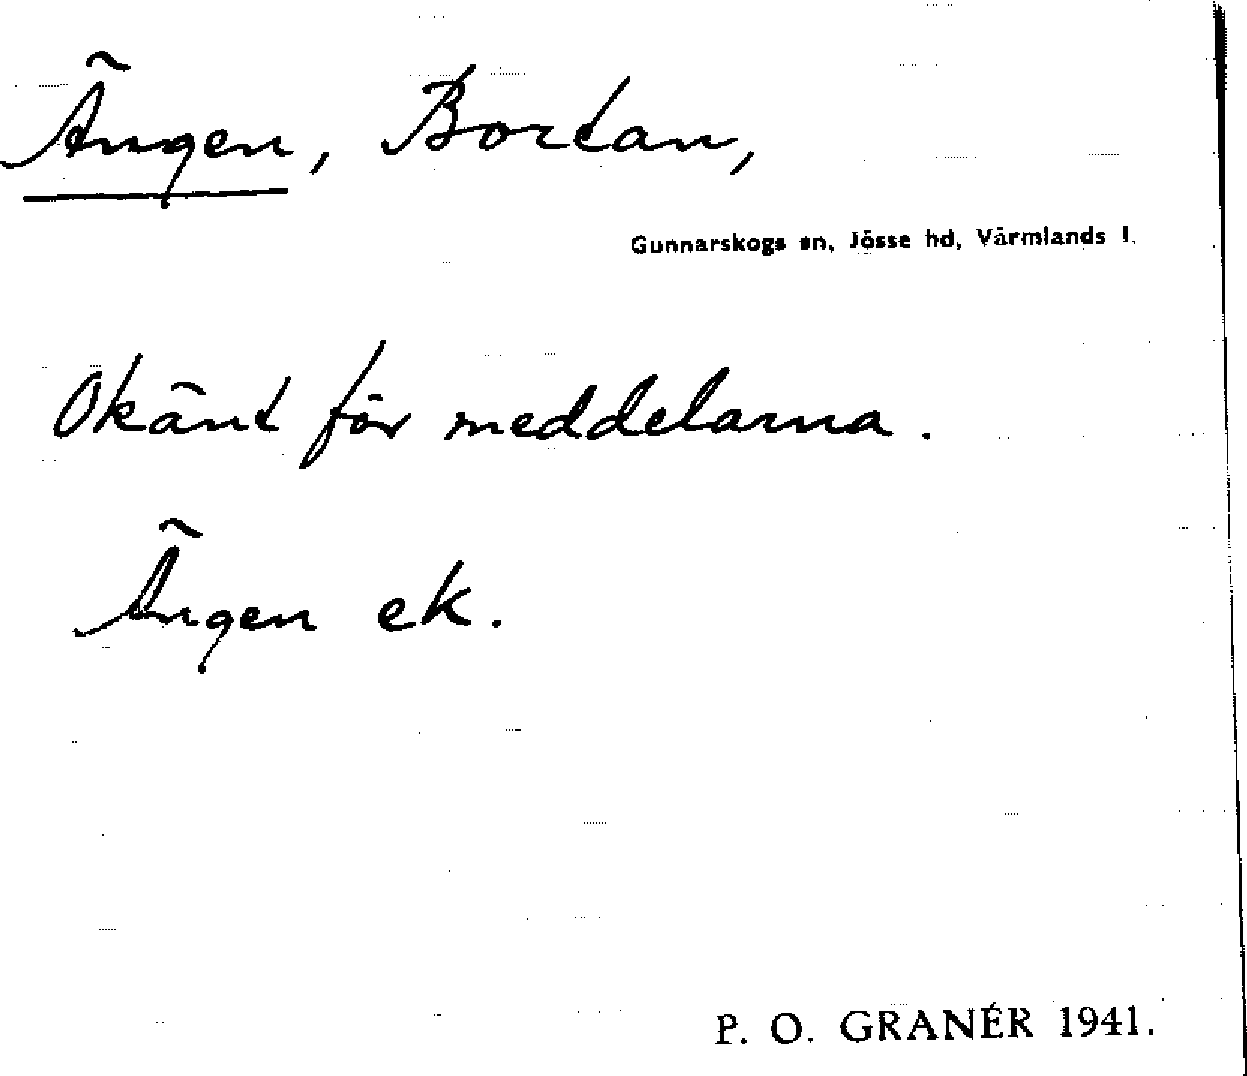 Ängen, Bortan,
Gunnarskogs sn, Jösse hd, Värmlands l.
Okänt för meddelarna.
Ängen ek.
P. O. GRANÉR 1941.